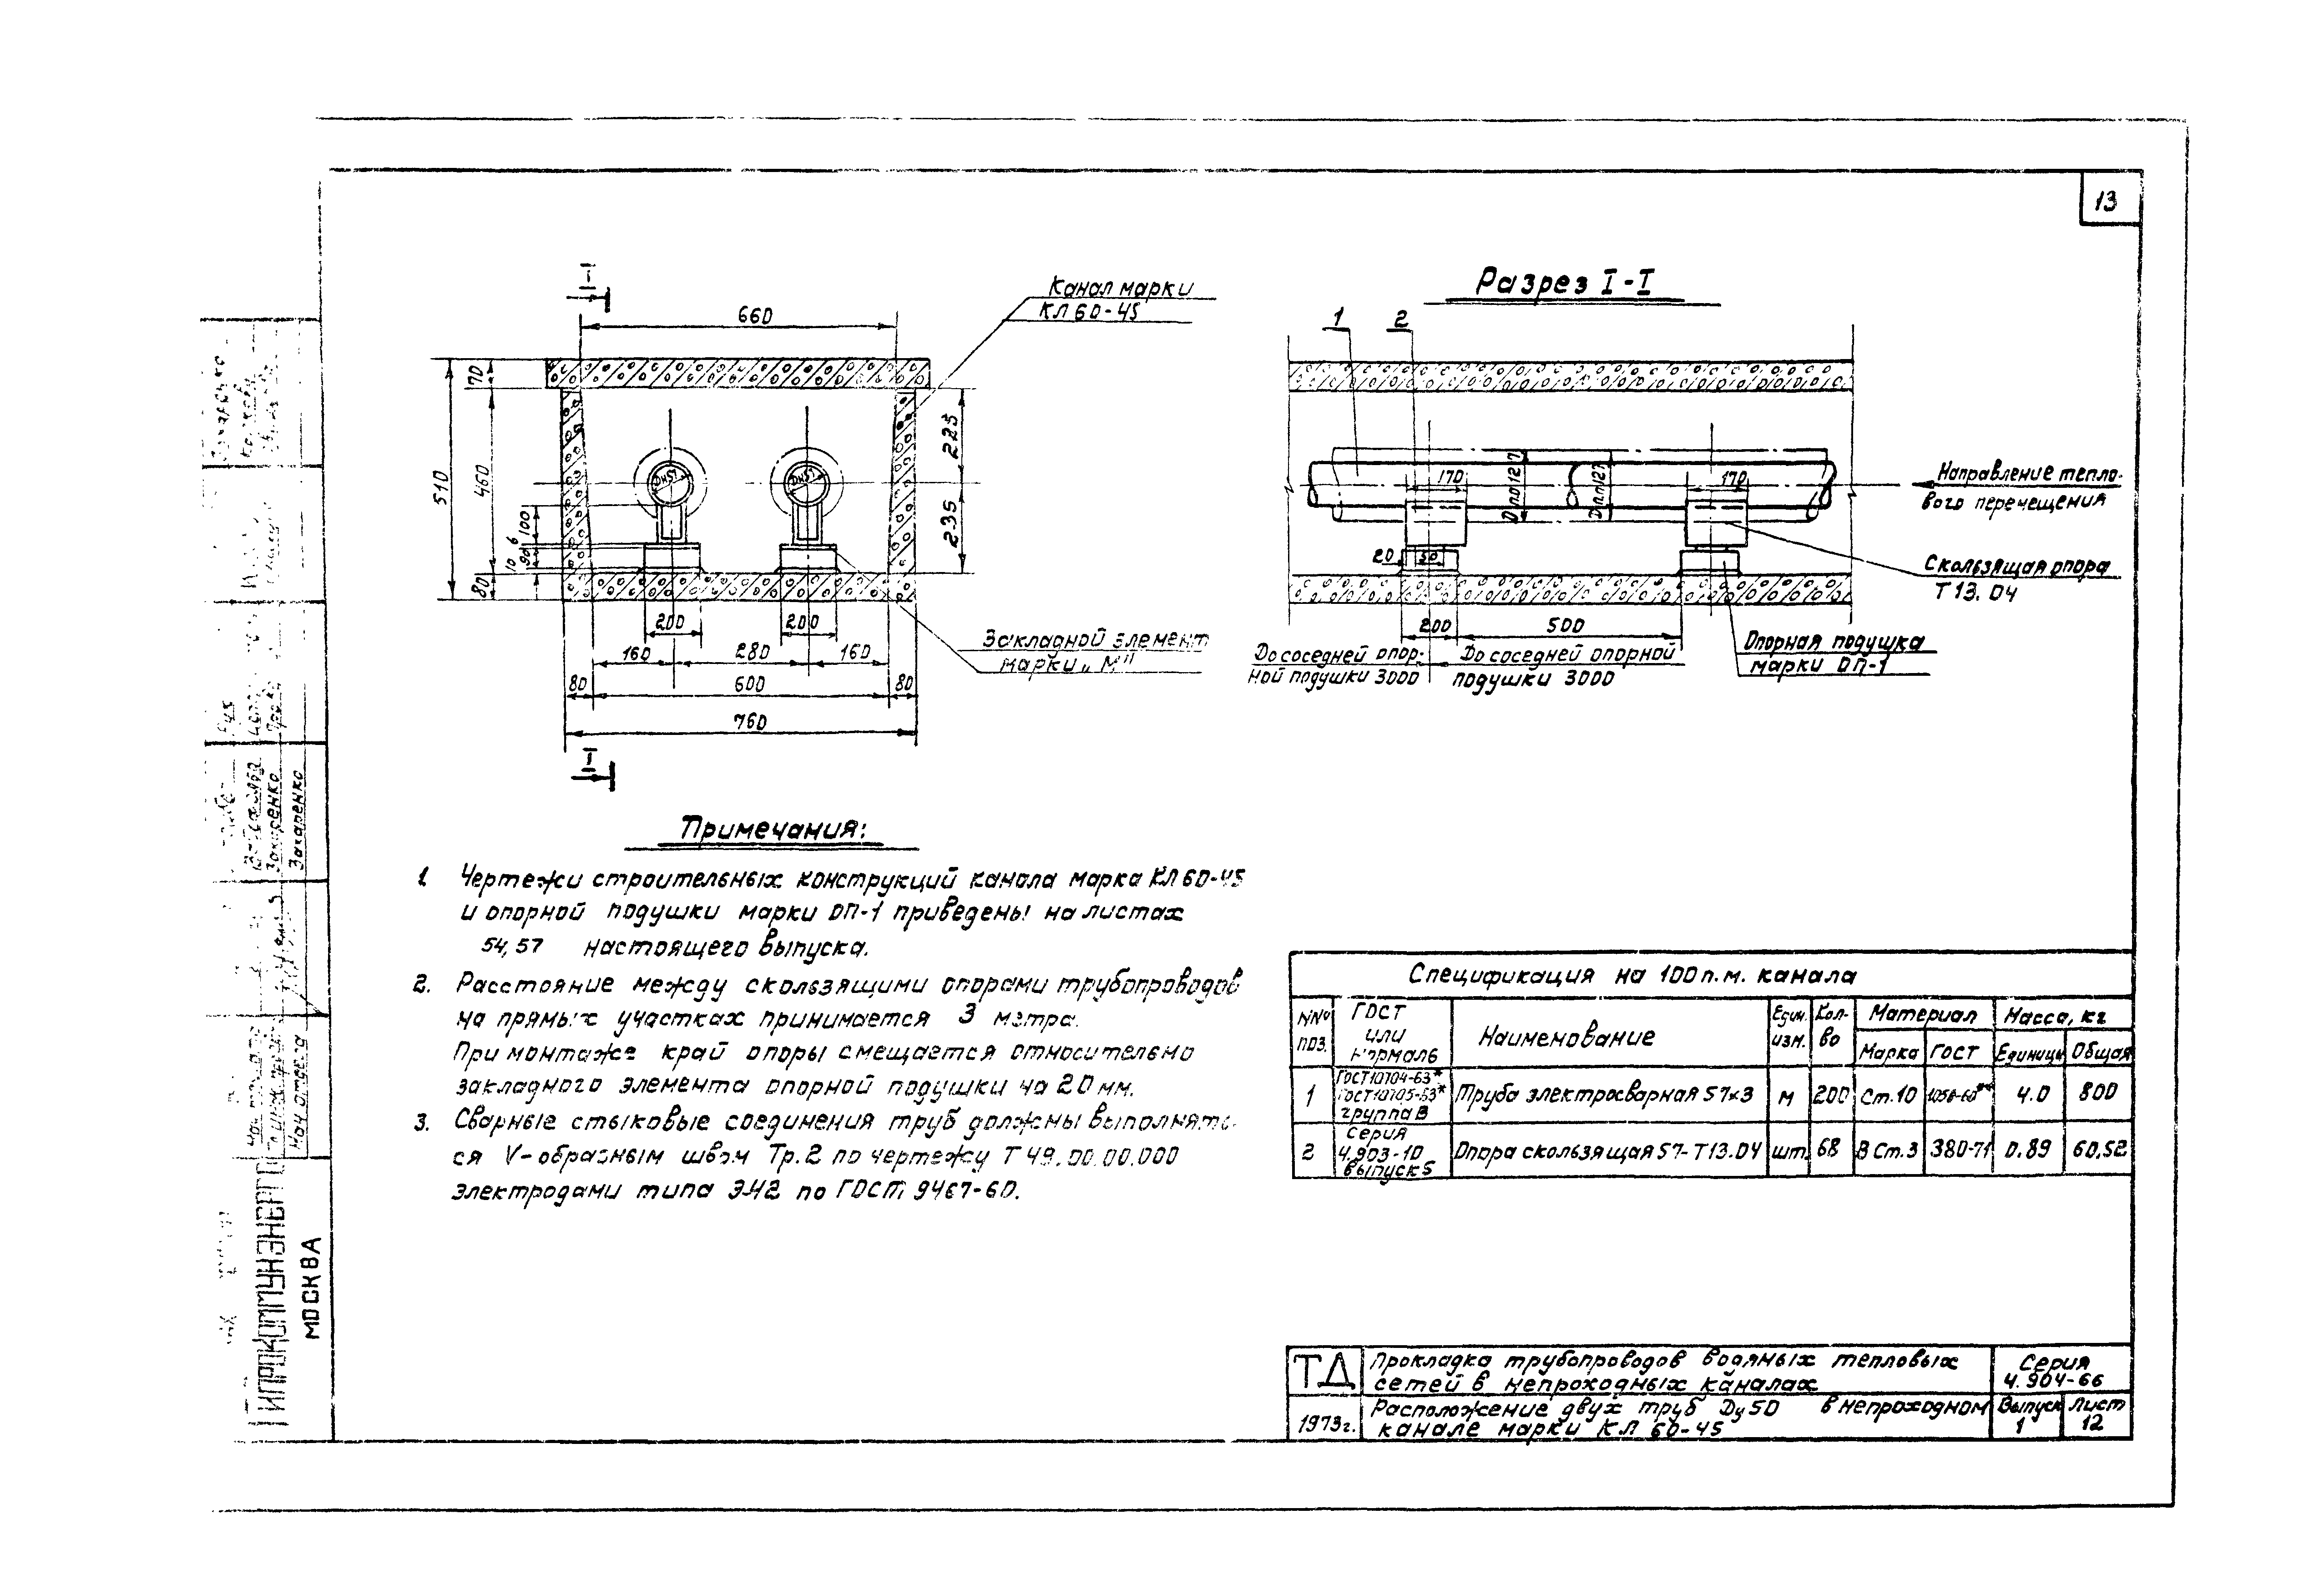 13
I
660
Канал марки
КЛ 60-45
70
510
460
80
100
6
90
10
Dн57
Dн57
225
235
200
200
160
280
160
80
600
80
760
Закладной элемент
марки „М"
I
Разрез I-I
1
2
170
Dп.п 127
Dп.п 127
170
20
50
200
500
До соседней опор-
ной подушки 3000
До соседней опорной
подушки 3000
Направление тепло-
вого перемещения
Скользящая опора
Т 13. 04
Опорная подушка
марки ОП-1
Примечания:
1 Чертежи строительных конструкций канала марка КЛ 60-45
и опорной подушки марки ОП-1 приведены на листах
54, 57 настоящего выпуска.
2. Расстояние между скользящими опорами трубопроводов
на прямых участках принимается 3 метра.
При монтаже край опоры смещается относительно
закладного элемента опорной подушки на 20 мм.
3. Сварные стыковые соединения труб должны выполнять-
ся V-образным швом Тр.2 по чертежу Т 49.00.00.000
электродами типа Э42 по ГОСТ 9467-60.
Спецификация на 100 п.м. канала
NNº поз. ГОСТ или нормаль Наименование Един. изм. Кол-во Материал Масса, кг
Марка ГОСТ Единицы Общая
1 ГОСТ 10704-63* ГОСТ 10705-63* группа В Труба электросварная 57х3 м 200 Ст.10 1050-60** 4.0 800
2 Серия 4.903-10 выпуск 5 Опора скользящая 57-Т13.04 шт. 68 В Ст.3 380-71 0.89 60.52
ТД
Прокладка трубопроводов водяных тепловых
сетей в непроходных каналах
Серия
4.904-66
1973г.
Расположение двух труб Dу50 в непроходном
канале марки КЛ 60-45
Выпуск
1
Лист
12
Захаренко
Захаренко
Нач отдела
ГИПРОКОММУНЭНЕРГО
МОСКВА